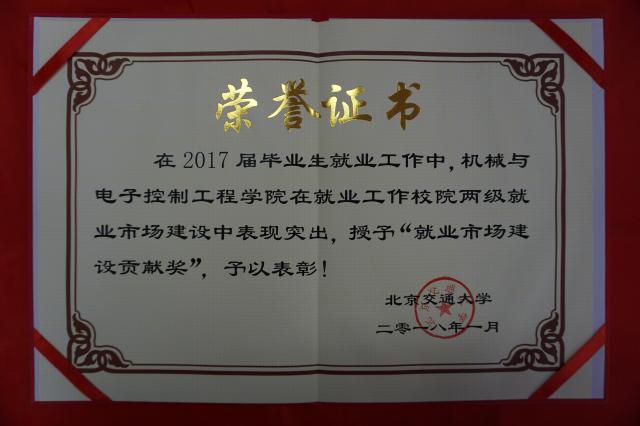 荣誉证书
在2017届毕业生就业工作中,机械与
电子控制工程学院在就业工作校院两级就
业市场建设中表现突出，授予“就业市场建
设贡献奖”，予以表彰！
北京交通大学
二零一八年一月